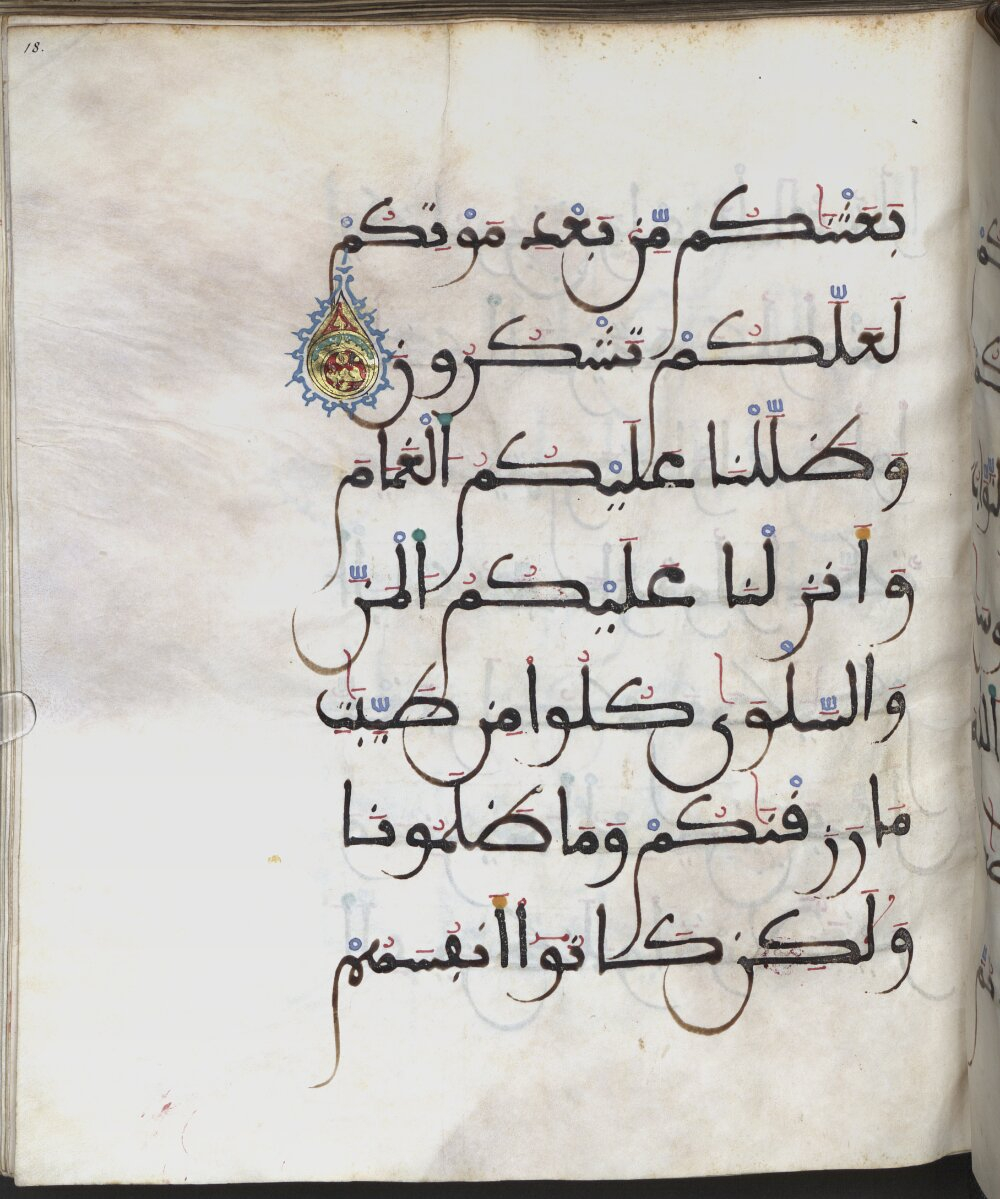 18.
بَعَثْنَٰكُم مِّنۢ بَعْدِ مَوْتِكُمْ
لَعَلَّكُمْ تَشْكُرُونَ
وَظَلَّلْنَا عَلَيْكُمُ الْغَمَامَ
وَأَنزَلْنَا عَلَيْكُمُ الْمَنَّ
وَالسَّلْوَىٰ كُلُوا مِن طَيِّبَٰتِ
مَا رَزَقْنَٰكُمْ وَمَا ظَلَمُونَا
وَلَٰكِن كَانُوا أَنفُسَهُمْ